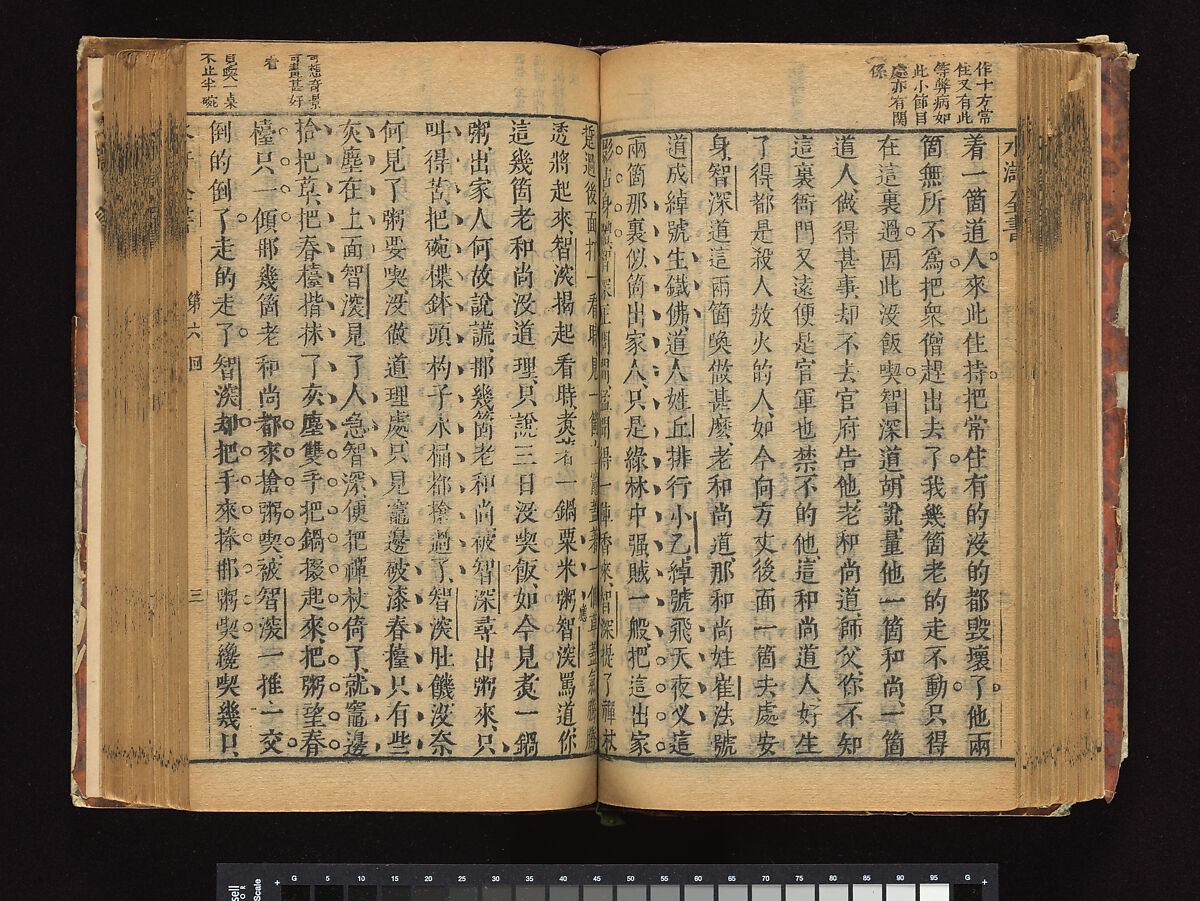 作十方常
住又有此
等弊病如
此小節目
處亦有関
係
水滸全書
着一箇道人來此住持把常住有的沒的都毀壞了他兩
箇無所不爲把衆僧趕出去了我幾箇老的走不動只得
在這裏過因此沒飯喫智深道胡說量他一箇和尚一箇
道人做得甚事却不去官府告他老和尚道師父你不知
這裏衙門又遠便是官軍也禁不的他這和尚道人好生
了得都是殺人放火的人如今向方丈後面一箇去處安
身智深道這兩箇喚做甚麽老和尚道那和尚姓崔法號
道成綽號生鐵佛道人姓丘排行小乙綽號飛天夜义這
兩箇那裏似箇出家人只是綠林中强賊一般把這出家
影占身體智深正問間猛聞得一陣香來智深提了禪杖
踅過後面打一看時見一箇土竈蓋着一箇草蓋氣騰騰
透將起來智深揭起看時煮着一鍋粟米粥智深罵道你
這幾箇老和尚沒道理只說三日沒喫飯如今見煮一鍋
粥出家人何故說謊那幾箇老和尚被智深尋出粥來只
叫得苦把碗楪鉢頭杓子水桶都搶過了智深肚饑沒奈
何見了粥要喫沒做道理處只見竈邊破漆春擡只有些
灰塵在上面智深見了人急智深便把禪杖倚了就竈邊
拾把草把春擡揩抹了灰塵雙手把鍋掇起來把粥望春
擡只一傾那幾箇老和尚都來搶粥喫被智深一推一交
倒的倒了走的走了智深却把手來捧那粥喫纔喫幾口
可想奇景
可畫甚好
看
直喫一桌
不止半碗
第六回
三